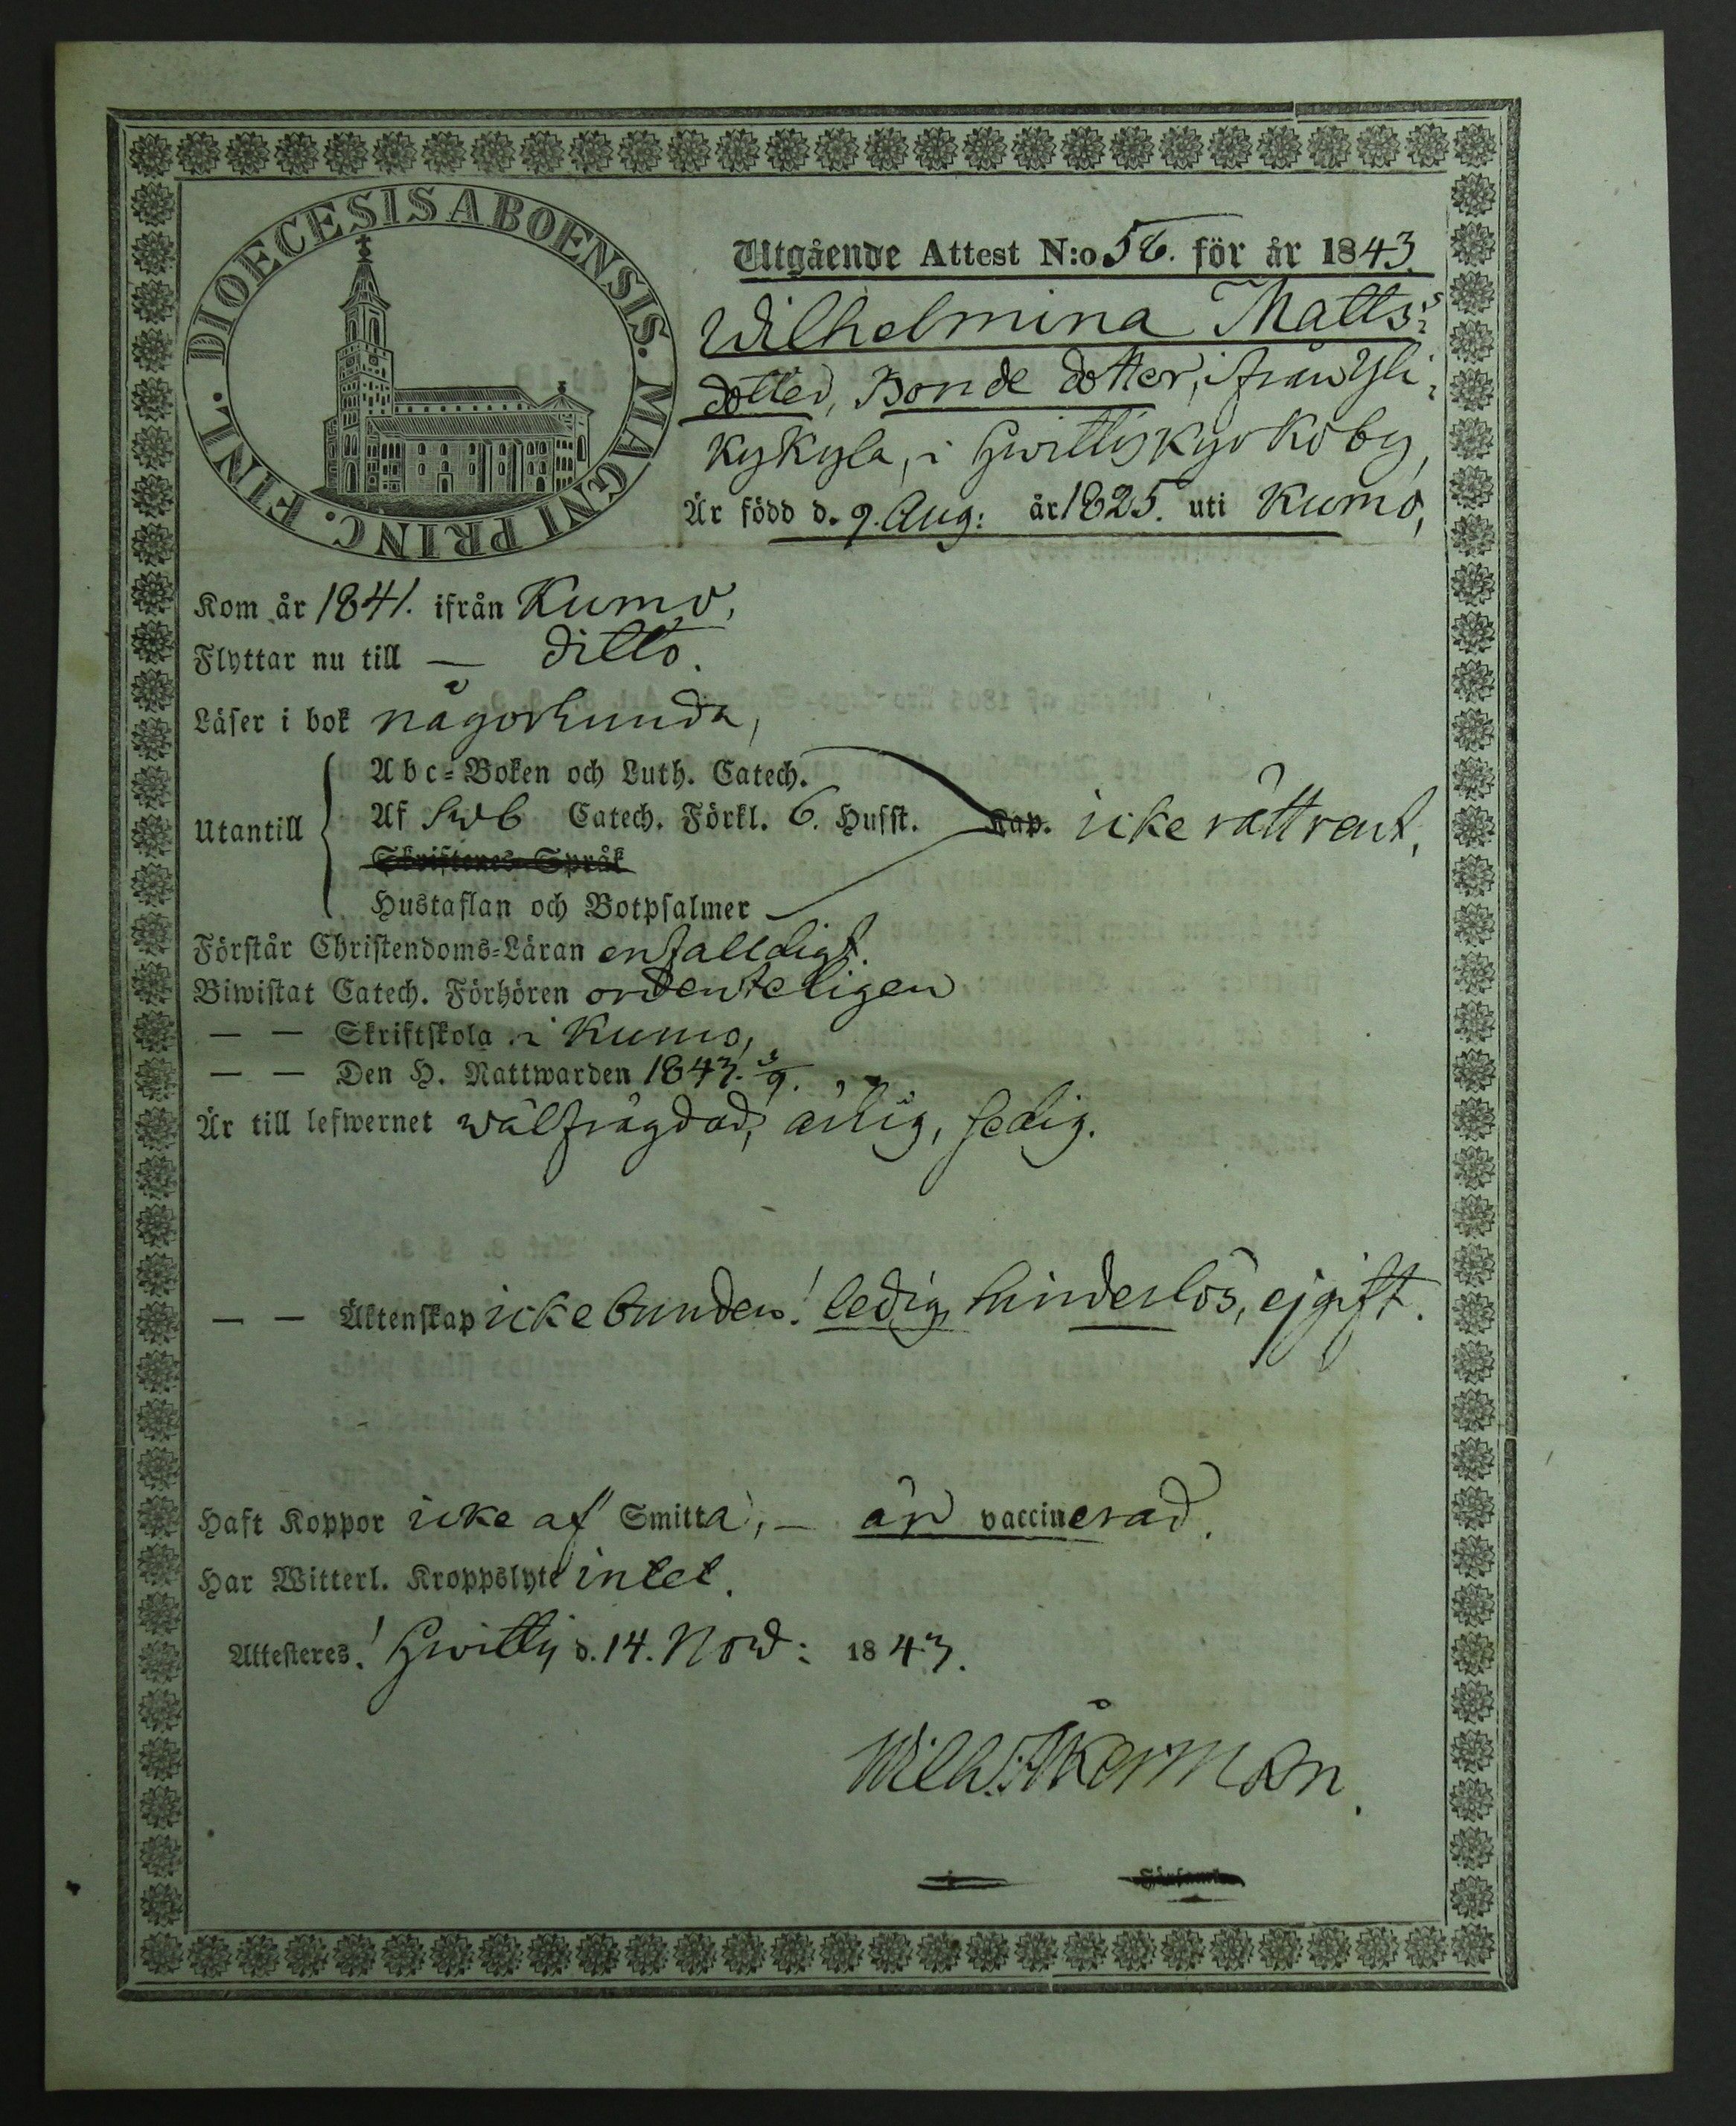 DIOECESIS ABOENSIS. MAGNI PRINC. FINL.
Utgående Attest N:o 56. för år 1843.
Wilhelmina Matts:
dotter, Bonde dotter, ifrån Yli:
Kykyla, i Hwittis Kyrkoby,
Är född d. 9. Aug: år 1825. uti Kumo,
Kom år 1841. ifrån Kumo,
Flyttar nu till — ditto.
Läser i bok någorlunda,
Abc-Boken och Luth. Catech.
Utantill Af Swb Catech. Förkl. 6. Husst. Kap. icke rätt rent,
Skriftenes Språk
Hustaflan och Botpsalmer
Förstår Christendoms-Läran enfalldigt.
Biwistat Catech. Förhören ordenteligen
— — Skriftskola i Kumo,
— — Den H. Nattwarden 1843. 3/9.
Är till lefwernet wälfrägdad, ärlig, sedig.
— — Äktenskap icke bunden! ledig, hinderlös, ej gift.
Haft Koppor icke af Smitta, — är vaccinerad.
Har Witterl. Kroppslyte intet.
Attesteres! Hwittis d. 14. Nov: 1843.
Wilh. Åkerman.